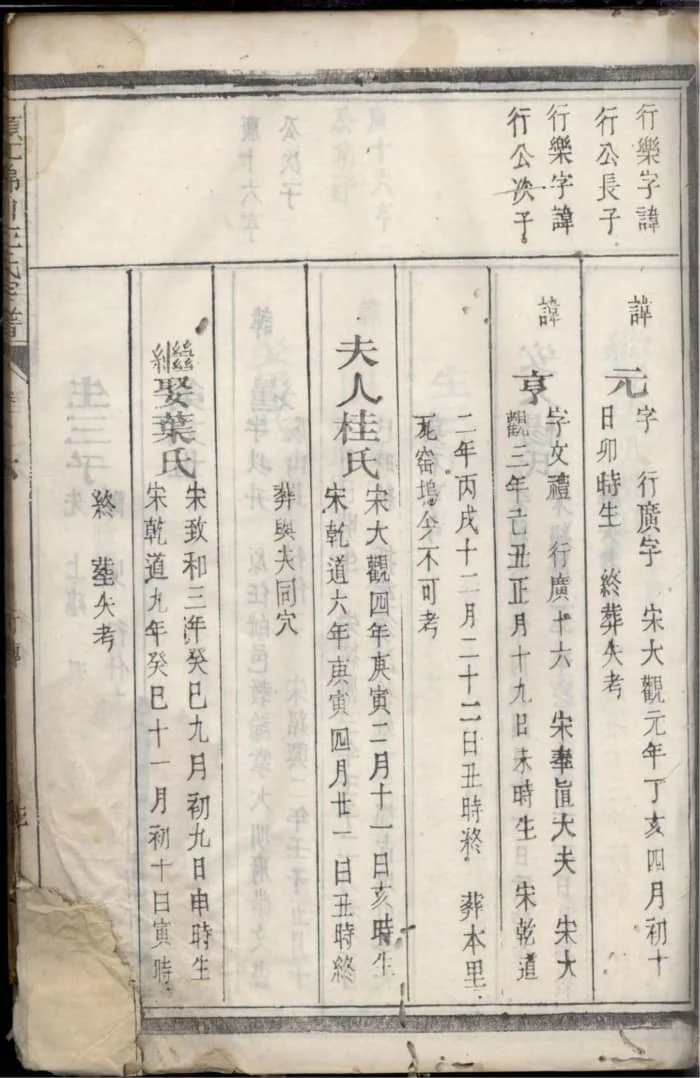 行樂字諱
行公長子
行樂字諱
行公次子
諱
元
字 行廣字 宋大觀元年丁亥四月初十
日卯時生 終葬失考
諱
亨
字文禮 行廣十六 宋奉直大夫 宋大
觀三年己丑正月十九日未時生 宋乾道
二年丙戌十二月二十二日丑時終 葬本里
瓦窑塢今不可考
夫人桂氏
宋大觀四年庚寅二月十一日亥時生
宋乾道六年庚寅四月廿一日丑時終
葬與夫同穴
繼娶葉氏
宋致和三年癸巳九月初九日申時生
宋乾道九年癸巳十一月初十日寅時
終 塟失考